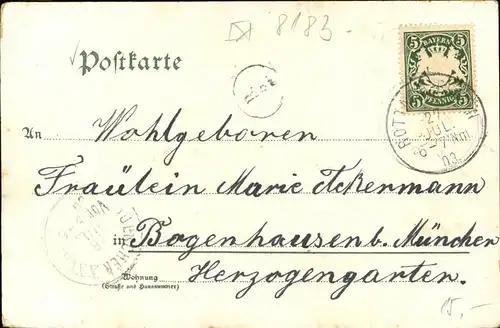 8183
Postkarte
5 BAYERN 5
5 PFENNIG 5
JUL.
03.
An Wohlgeboren
Fräulein Marie Ackermann
in Bogenhausen b. München
Wohnung
(Straße und Hausnummer)
Herzogengarten.
15,-